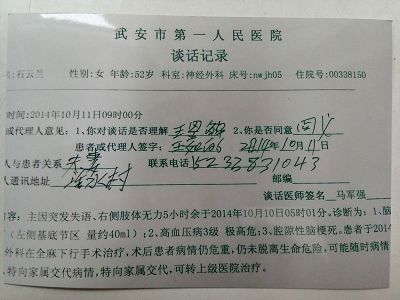 武安市第一人民医院
谈话记录
名:石云兰 性别:女 年龄:52岁 科室:神经外科 床号:nwjh05 住院号:00338150
时间:2014年10月11日09时00分
或代理人意见:1、你对谈话是否理解 2、你是否同意 同意
患者或代理人签字: 2014年10月11
人与患者关系 夫妻 联系电话15233831043
人通讯地址 村 邮编
谈话医师签名 马军强
内容:主因突发失语、右侧肢体无力5小时余于2014年10月10日05时01分,诊断为:1、脑
(左侧基底节区 量约40ml);2、高血压病3级 极高危;3、腔隙性脑梗死,患者于
外科在全麻下行手术治疗,术后患者病情仍危重,仍未脱离生命危险,可能随时病情
,特向家属交代病情,特向家属交代,可转上级医院治疗。